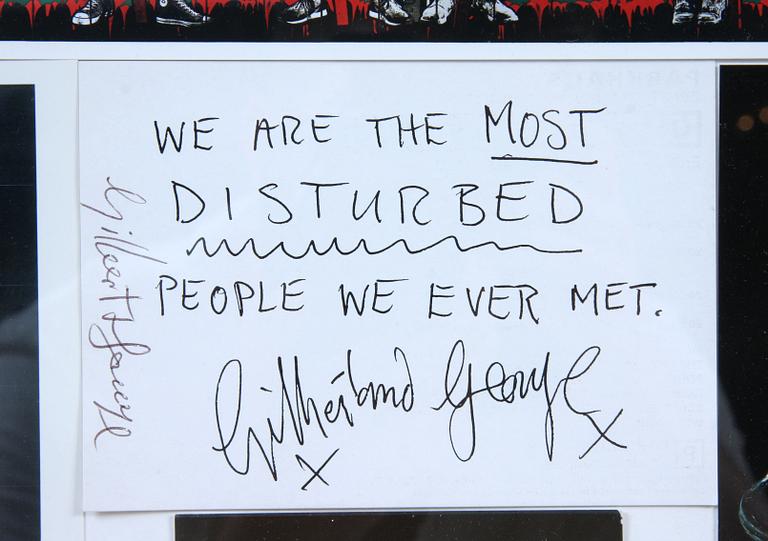 WE ARE THE MOST
DISTURBED
PEOPLE WE EVER MET.
Gilbert and George
x x
Gilbert + George